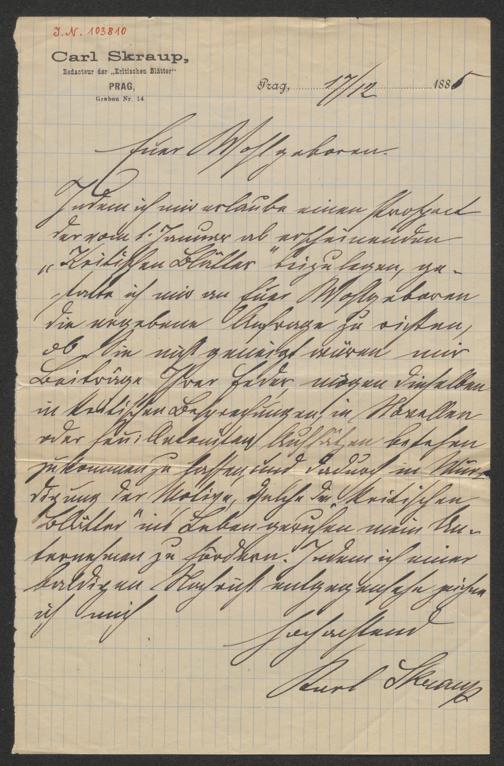 J.N. 103810
Carl Skraup,
Redacteur der „Kritischen Blätter"
PRAG,
Graben Nr. 14
Prag, 17/12 1885
Euer Wohlgeboren.
Indem ich mir erlaube einen Prospect
der vom 1. Januar ab erscheinenden
„Kritischen Blätter" beizulegen, ge-
statte ich mir an Euer Wohlgeboren
die ergebene Anfrage zu richten,
ob Sie nicht geneigt wären mir
Beiträge Ihrer Feder, mögen dieselben
in kritischen Besprechungen, in Novellen
oder feuilletonist. Aufsätzen bestehen
zukommen zu lassen und dadurch in Wür-
digung der Motive, welche die „Kritischen
Blätter" ins Leben gerufen mein Un-
ternehmen zu fördern. Indem ich einer
baldigen Nachricht entgegensehe zeichne
ich mich
Hochachtend
Karl Skraup